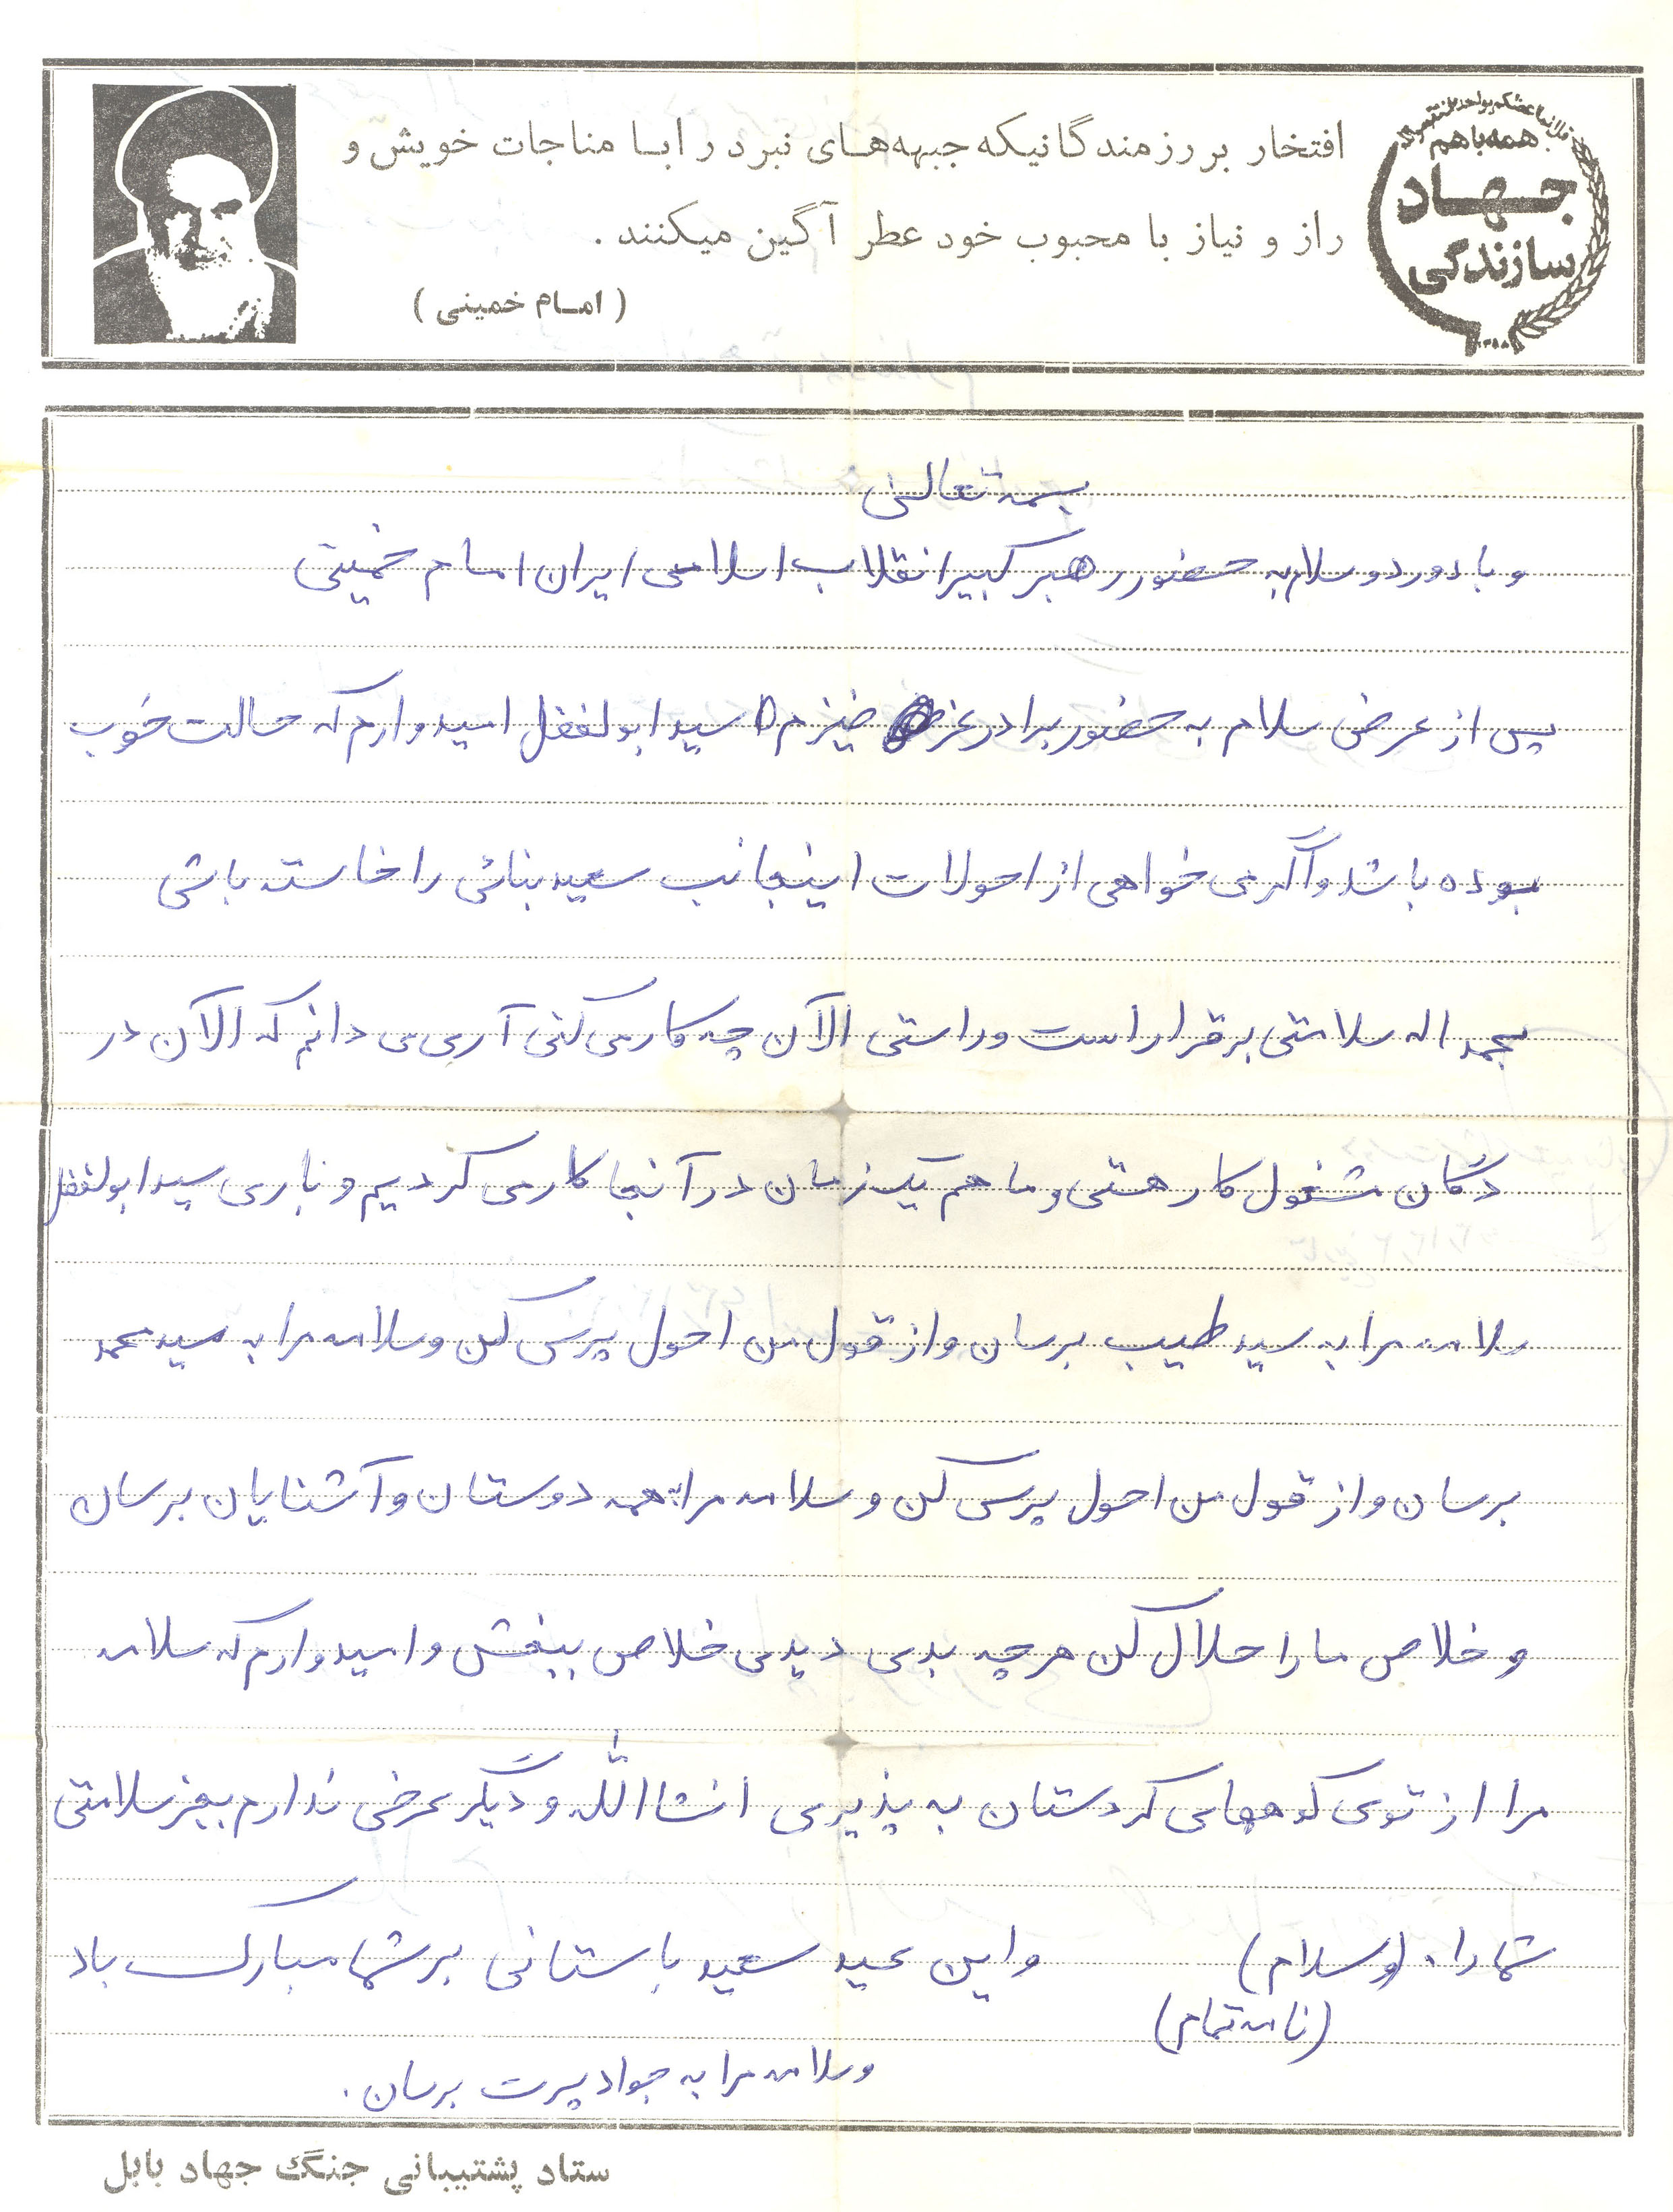 همه با هم
جهاد
سازندگی
۱۳۵۸
افتخار بر رزمندگانیکه جبهه‌های نبرد را با مناجات خویش و
راز و نیاز با محبوب خود عطر آگین میکنند .
( امام خمینی )
بسمه تعالی
و با دورد و سلام به حضور رهبر کبیر انقلاب اسلامی ایران امام خمینی
پس از عرض سلام به حضور برادر عزضیزم سید ابولفضل امیدوارم که حالت خوب
بوده باشد و اگر می خواهی از احولات اینجانب سعید بنائی را خاسته باشی
بحمد اله سلامتی برقرار است و راستی الآن چه کار می کنی آری می دانم که الآن در
دکان مشغول کار هستی و ما هم یک زمان در آنجا کار می کردیم و باری سید ابولفضل
سلامه مرا به سید طیب برسان و از قول من احول پرسی کن و سلامه مرا به سید محمد
برسان و از قول من احول پرسی کن و سلامه مرا به همه دوستان و آشنایان برسان
و خلاص ما را حلال کن هر چه بدی دیدی خلاص ببخش و امیدوارم که سلامه
مرا از توی کوههای کردستان به پذیری انشاالله و دیگر عرضی ندارم بغیر سلامتی
شما را . (وسلام) و این عید سعید باستانی بر شما مبارک باد
(نامه تمام)
و سلامه مرا به جواد پسرت برسان .
ستاد پشتیبانی جنگ جهاد بابل